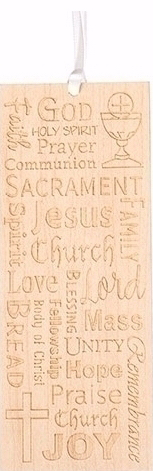 Faith
GOD
HOLY SPIRIT
Prayer
Communion
SACRAMENT
Spirit
Jesus
FAMILY
Church
Love
BLESSING
Lord
BREAD
Body of Christ
Fellowship
Mass
UNITY
Hope
Remembrance
Praise
Church
JOY